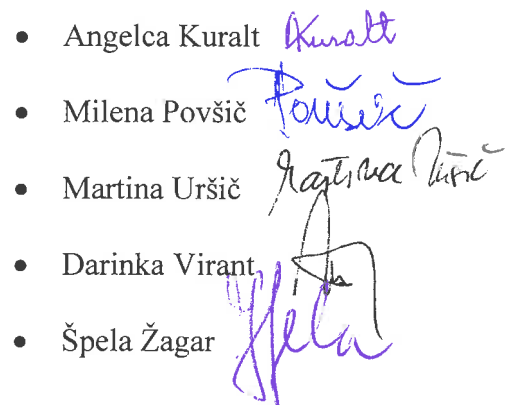 • Angelca Kuralt Kuralt
• Milena Povšič Povšič
• Martina Uršič Martina Uršič
• Darinka Virant
• Špela Žagar Špela